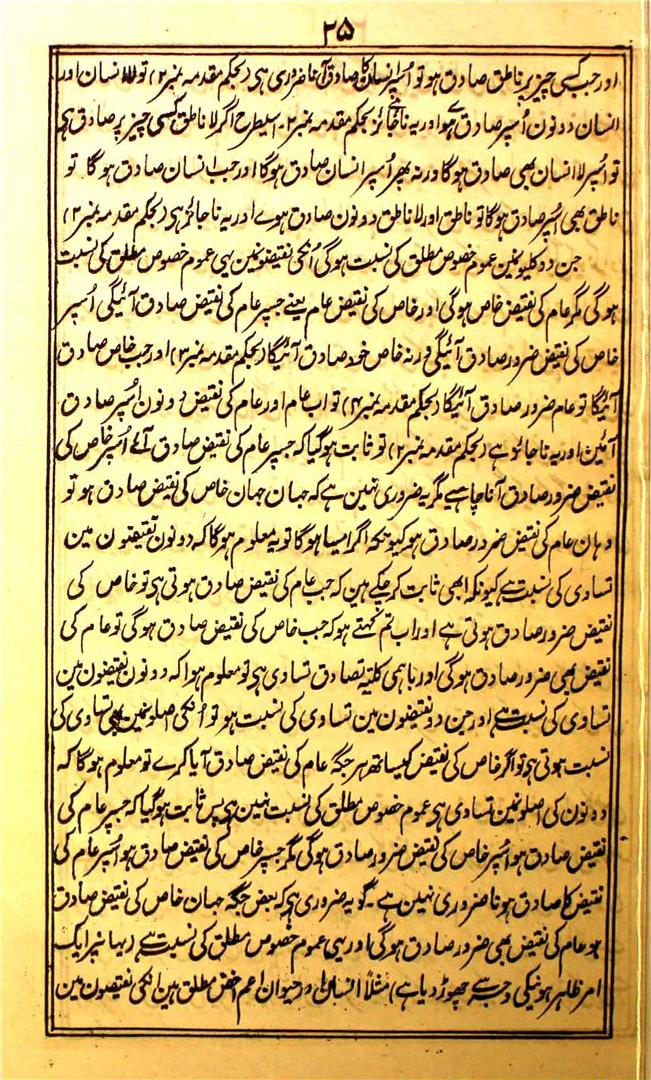 ۲۵
اور جب کسی چیز پر ناطق صادق ہو تو اُسپر انسان کا صادق آنا ضروری ہی (بحکم مقدمہ نمبر ۲) تو لا انسان اور
انسان دونون اُسپر صادق ہوے اور یہ ناجائز بحکم مقدمہ نمبر ۲۔ اسیطرح اگر لا ناطق کسی چیز پر صادق ہی
تو اُسپر لا انسان بھی صادق ہوگا ورنہ پھر اُسپر انسان صادق ہوگا اور جب انسان صادق ہو گا تو
ناطق بھی اُسپر صادق ہوگا تو ناطق اور لا ناطق دونون صادق ہوے اور یہ ناجائز ہی (بحکم مقدمہ نمبر ۲)
جن دو کلیونمین عموم خصوص مطلق کی نسبت ہوگی اُنکی نقیضونمین بھی عموم خصوص مطلق کی نسبت
ہوگی مگر عام کی نقیض خاص ہوگی اور خاص کی نقیض عام یعنے جسپر عام کی نقیض صادق آئیگی اُسپر
خاص کی نقیض ضرور صادق آئیگی ورنہ خاص خود صادق آئیگا (بحکم مقدمہ نمبر ۳) اور جب خاص صادق
آئیگا تو عام ضرور صادق آئیگا (بحکم مقدمہ نمبر ۴) تو اب عام اور عام کی نقیض دونون اُسپر صادق
آئین اور یہ ناجائز ہے (بحکم مقدمہ نمبر ۲) تو ثابت ہوگیا کہ جسپر عام کی نقیض صادق آئے اُسپر خاص کی
نقیض ضرور صادق آنا چاہیے مگر یہ ضروری نہین ہے کہ جہان جہان خاص کی نقیض صادق ہو تو
وہان عام کی نقیض ضرور صادق ہو کیونکہ اگر ایسا ہوگا تو یہ معلوم ہوگا کہ دونون نقیضون مین
تساوی کی نسبت ہے کیونکہ ابھی ثابت کرچکے ہین کہ جب عام کی نقیض صادق ہوتی ہی تو خاص کی
نقیض ضرور صادق ہوتی ہے اور اب تم کہتے ہو کہ جب خاص کی نقیض صادق ہوگی تو عام کی
نقیض بھی ضرور صادق ہوگی اور باہمی کلیۃ تصادق تساوی ہی تو معلوم ہوا کہ دونون نقیضون مین
تساوی کی نسبت ہے اور جن دو نقیضون مین تساوی کی نسبت ہو تو اُنکی اصلونمین بھی تساوی کی
نسبت ہوتی ہی تو اگر خاص کی نقیض کیساتھ ہر جگہ عام کی نقیض صادق آیا کرے تو معلوم ہوگا کہ
دونون کی اصلونمین تساوی ہی عموم خصوص مطلق کی نسبت نہین ہی پس ثابت ہوگیا کہ جسپر عام کی
نقیض صادق ہو اُسپر خاص کی نقیض ضرور صادق ہوگی مگر جسپر خاص کی نقیض صادق ہو اُسپر عام کی
نقیض کا صادق ہونا ضروری نہین ہے۔ گو یہ ضروری ہی کہ بعض جگہ جہان خاص کی نقیض صادق
ہو عام کی نقیض بھی ضرور صادق ہوگی اور یہی عموم خصوص مطلق کی نسبت ہے (یہانپر ایک
امر ظاہر ہونیکی وجہ سے چھوڑ دیا ہے) مثلاً انسان اور حیوان اعم اخص مطلق ہین انکی نقیضون مین